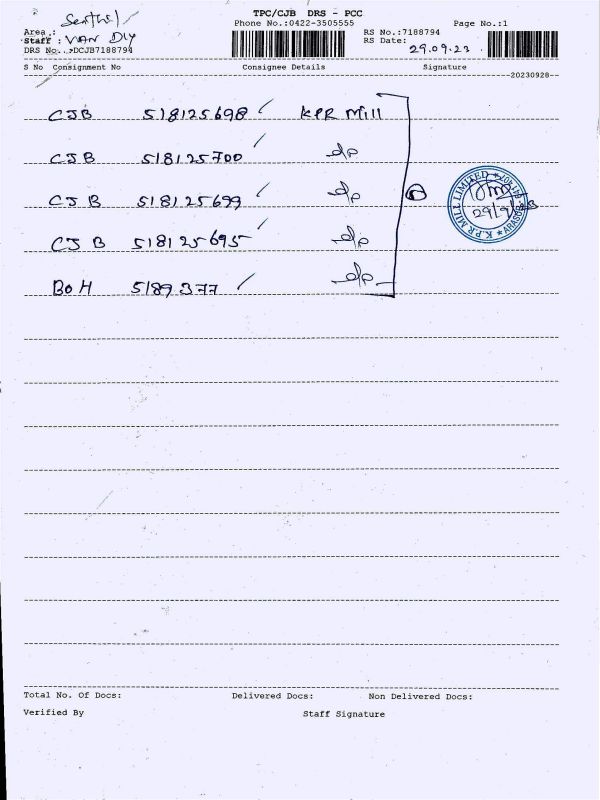 TPC/CJB DRS - PCC
Phone No.:0422-3505555
Page No.:1
Area :
Staff : VAN DLY
DRS No.:DCJB7188794
RS No.:7188794
RS Date: 29.09.23
S No Consignment No Consignee Details Signature
20230928
CJB 518125698 ✓ KPR Mill
CJB 518125700 ✓ do
CJB 518125699 ✓ do
CJB 518125695 ✓ do
BOH 5189377 ✓ do
K.P.R MILL LIMITED
29/9/23
Total No. Of Docs: Delivered Docs: Non Delivered Docs:
Verified By Staff Signature